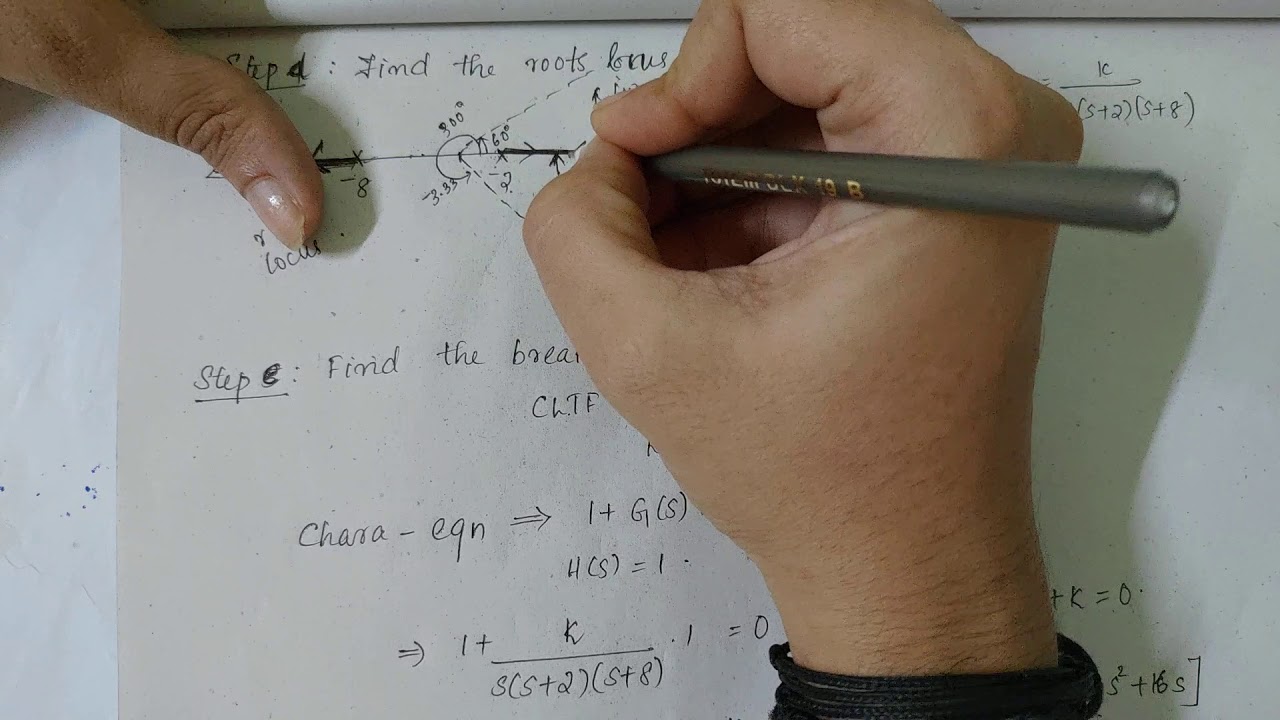 Step d : Find the roots locus
K
(s+2)(s+8)
300°
60°
-8
-3.33
-2
locus.
Step e: Find the brea
CLTF
K
Chara - eqn ⇒ 1+ G(s)
H(s) = 1 .
+K = 0.
⇒ 1+ K/s(s+2)(s+8) . 1 = 0
s²+16s]